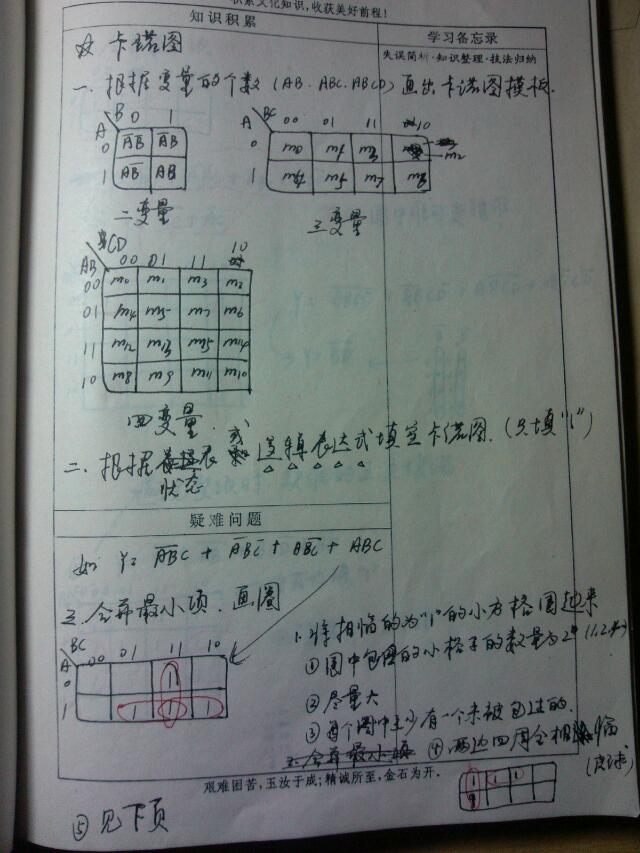 积累文化知识,收获美好前程!
知识积累
学习备忘录
失误简析·知识整理·技法归纳
☆ 卡诺图
一、根据变量的个数(AB、ABC、ABCD)画出卡诺图模板.
B 0 1
A
0 A̅B̅ A̅B
1 AB̅ AB
二变量
A BC 00 01 11 10
0 m0 m1 m3
m2
1 m4 m5 m7 m6
三变量
CD
AB 00 01 11 10
00 m0 m1 m3 m2
01 m4 m5 m7 m6
11 m12 m13 m15 m14
10 m8 m9 m11 m10
四变量.
二、根据
状态
或
逻辑表达式填空卡诺图.(只填"1")
疑难问题
如 Y= A̅BC + AB̅C + ABC̅ + ABC
三、合并最小项、画圈
BC
A 00 01 11 10
0 1
1 1 1 1
1、将相临的为"1"的小方格圈起来
①圈中包围的小格子的数量为2ⁿ(1、2、4)
②尽量大
③每个圈中至少有一个未被包过的.
④两边四周全相临
(皮球)
1 1 1
艰难困苦,玉汝于成;精诚所至,金石为开。
⑤见下页